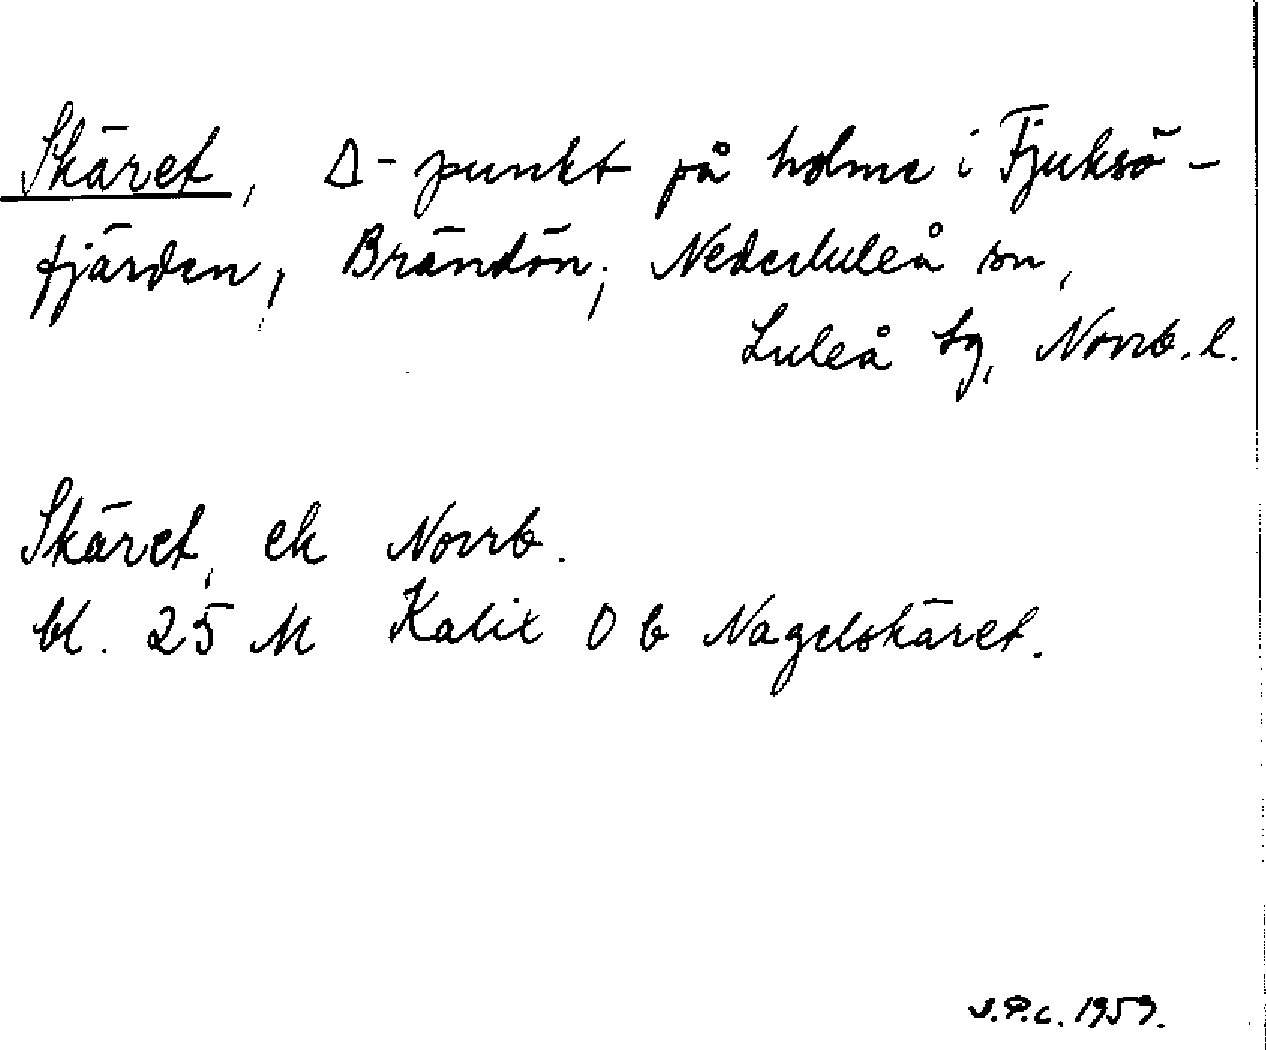 Skäret, Δ-punkt på holme i Fjuksö-
fjärden, Brändön, Nederluleå sn,
Luleå tg, Norrb. l.
Skäret, ek Norrb.
bl. 25 M Kalix O b Nagelskäret.
S.P.c. 1959.